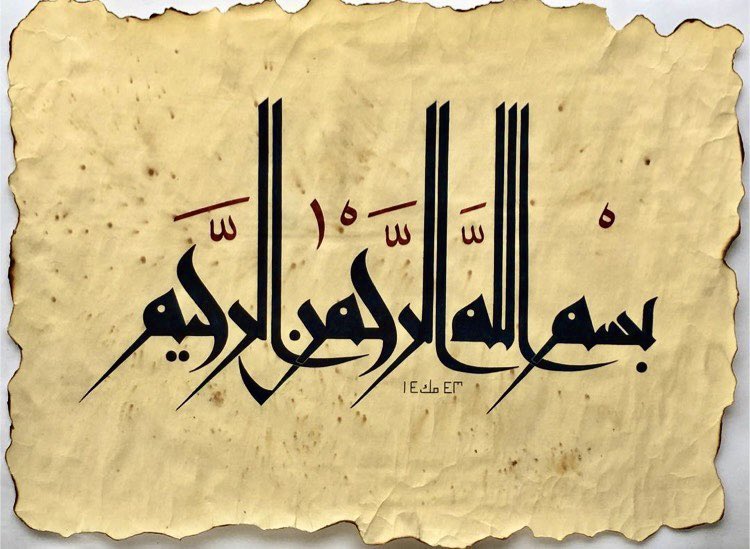 بسْم اللَّه الرَّحْمٰن الرَّحيم
١٤ مك ٤٣